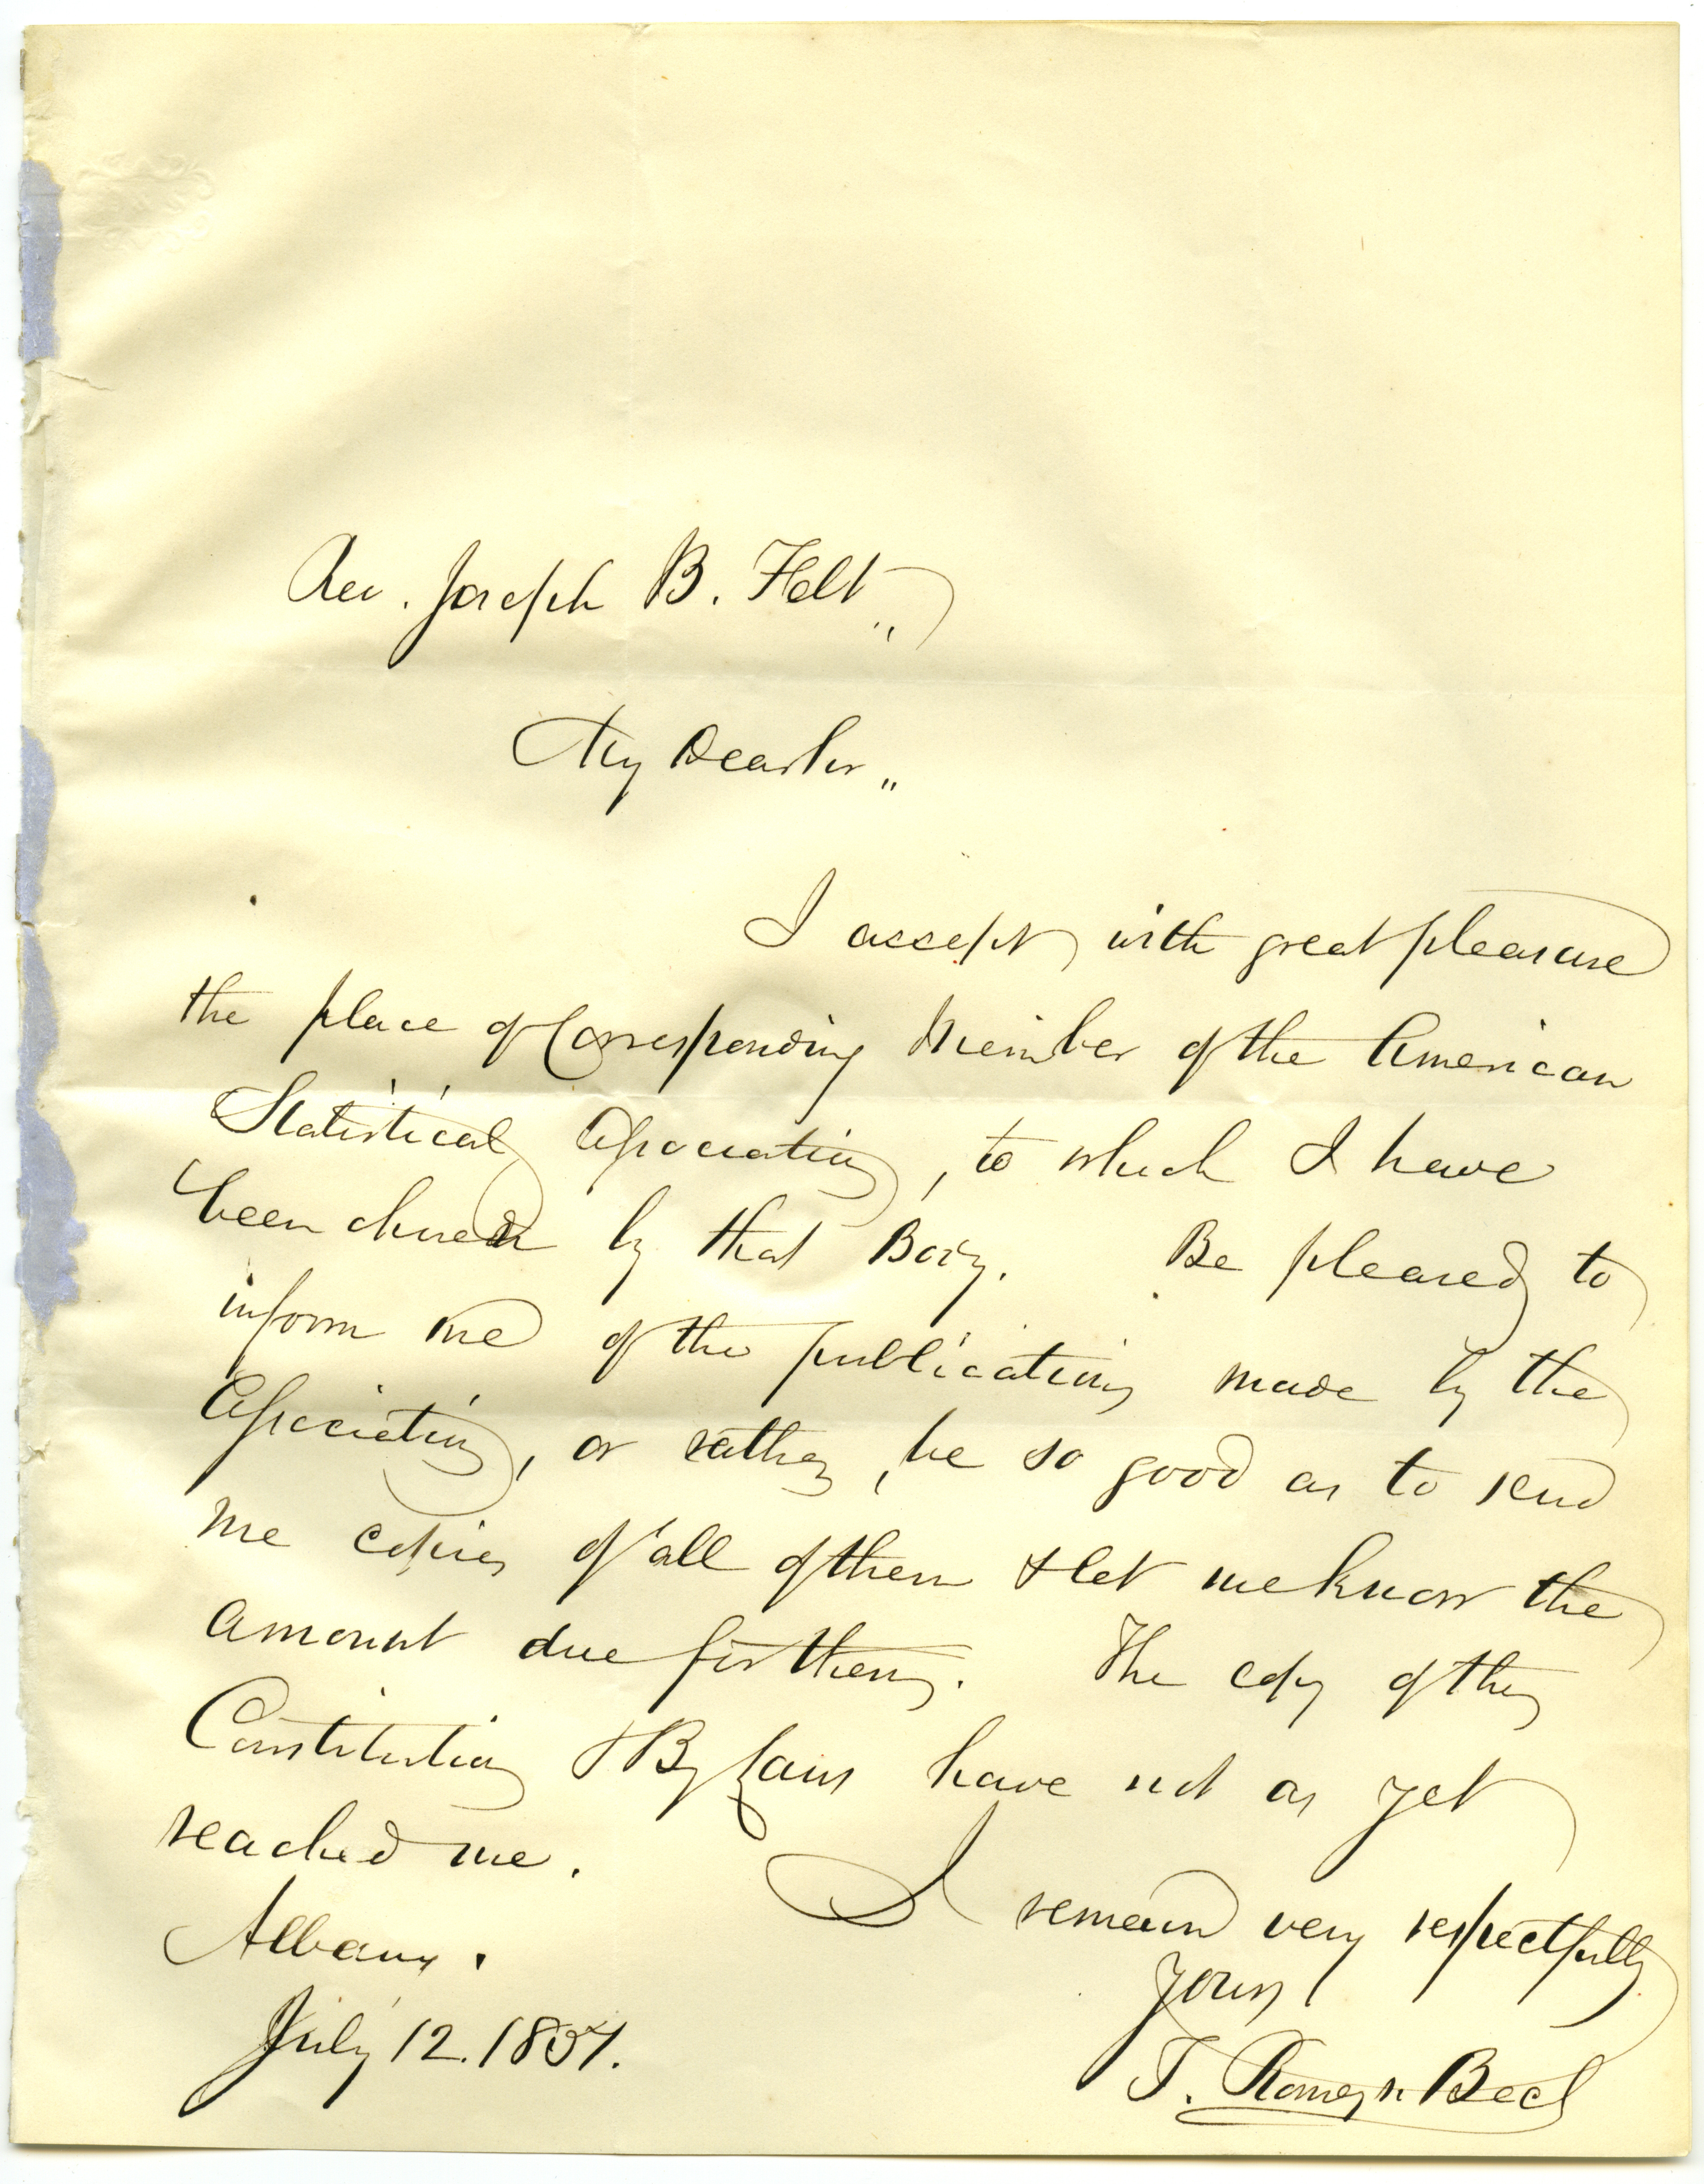 Rev. Joseph B. Felt,,
My Dear Sir,,
I accept with great pleasure
the place of Corresponding Member of the American
Statistical Association, to which I have
been chosen by that Body. Be pleased to
inform me of the publications made by the
Association, or rather, be so good as to send
me copies of all of them & let me know the
amount due for them. The copy of the
Constitution & By Laws have not as yet
reached me.
I remain very respectfully
Yours
Albany.
July 12. 1851.
T. Romeyn Beck